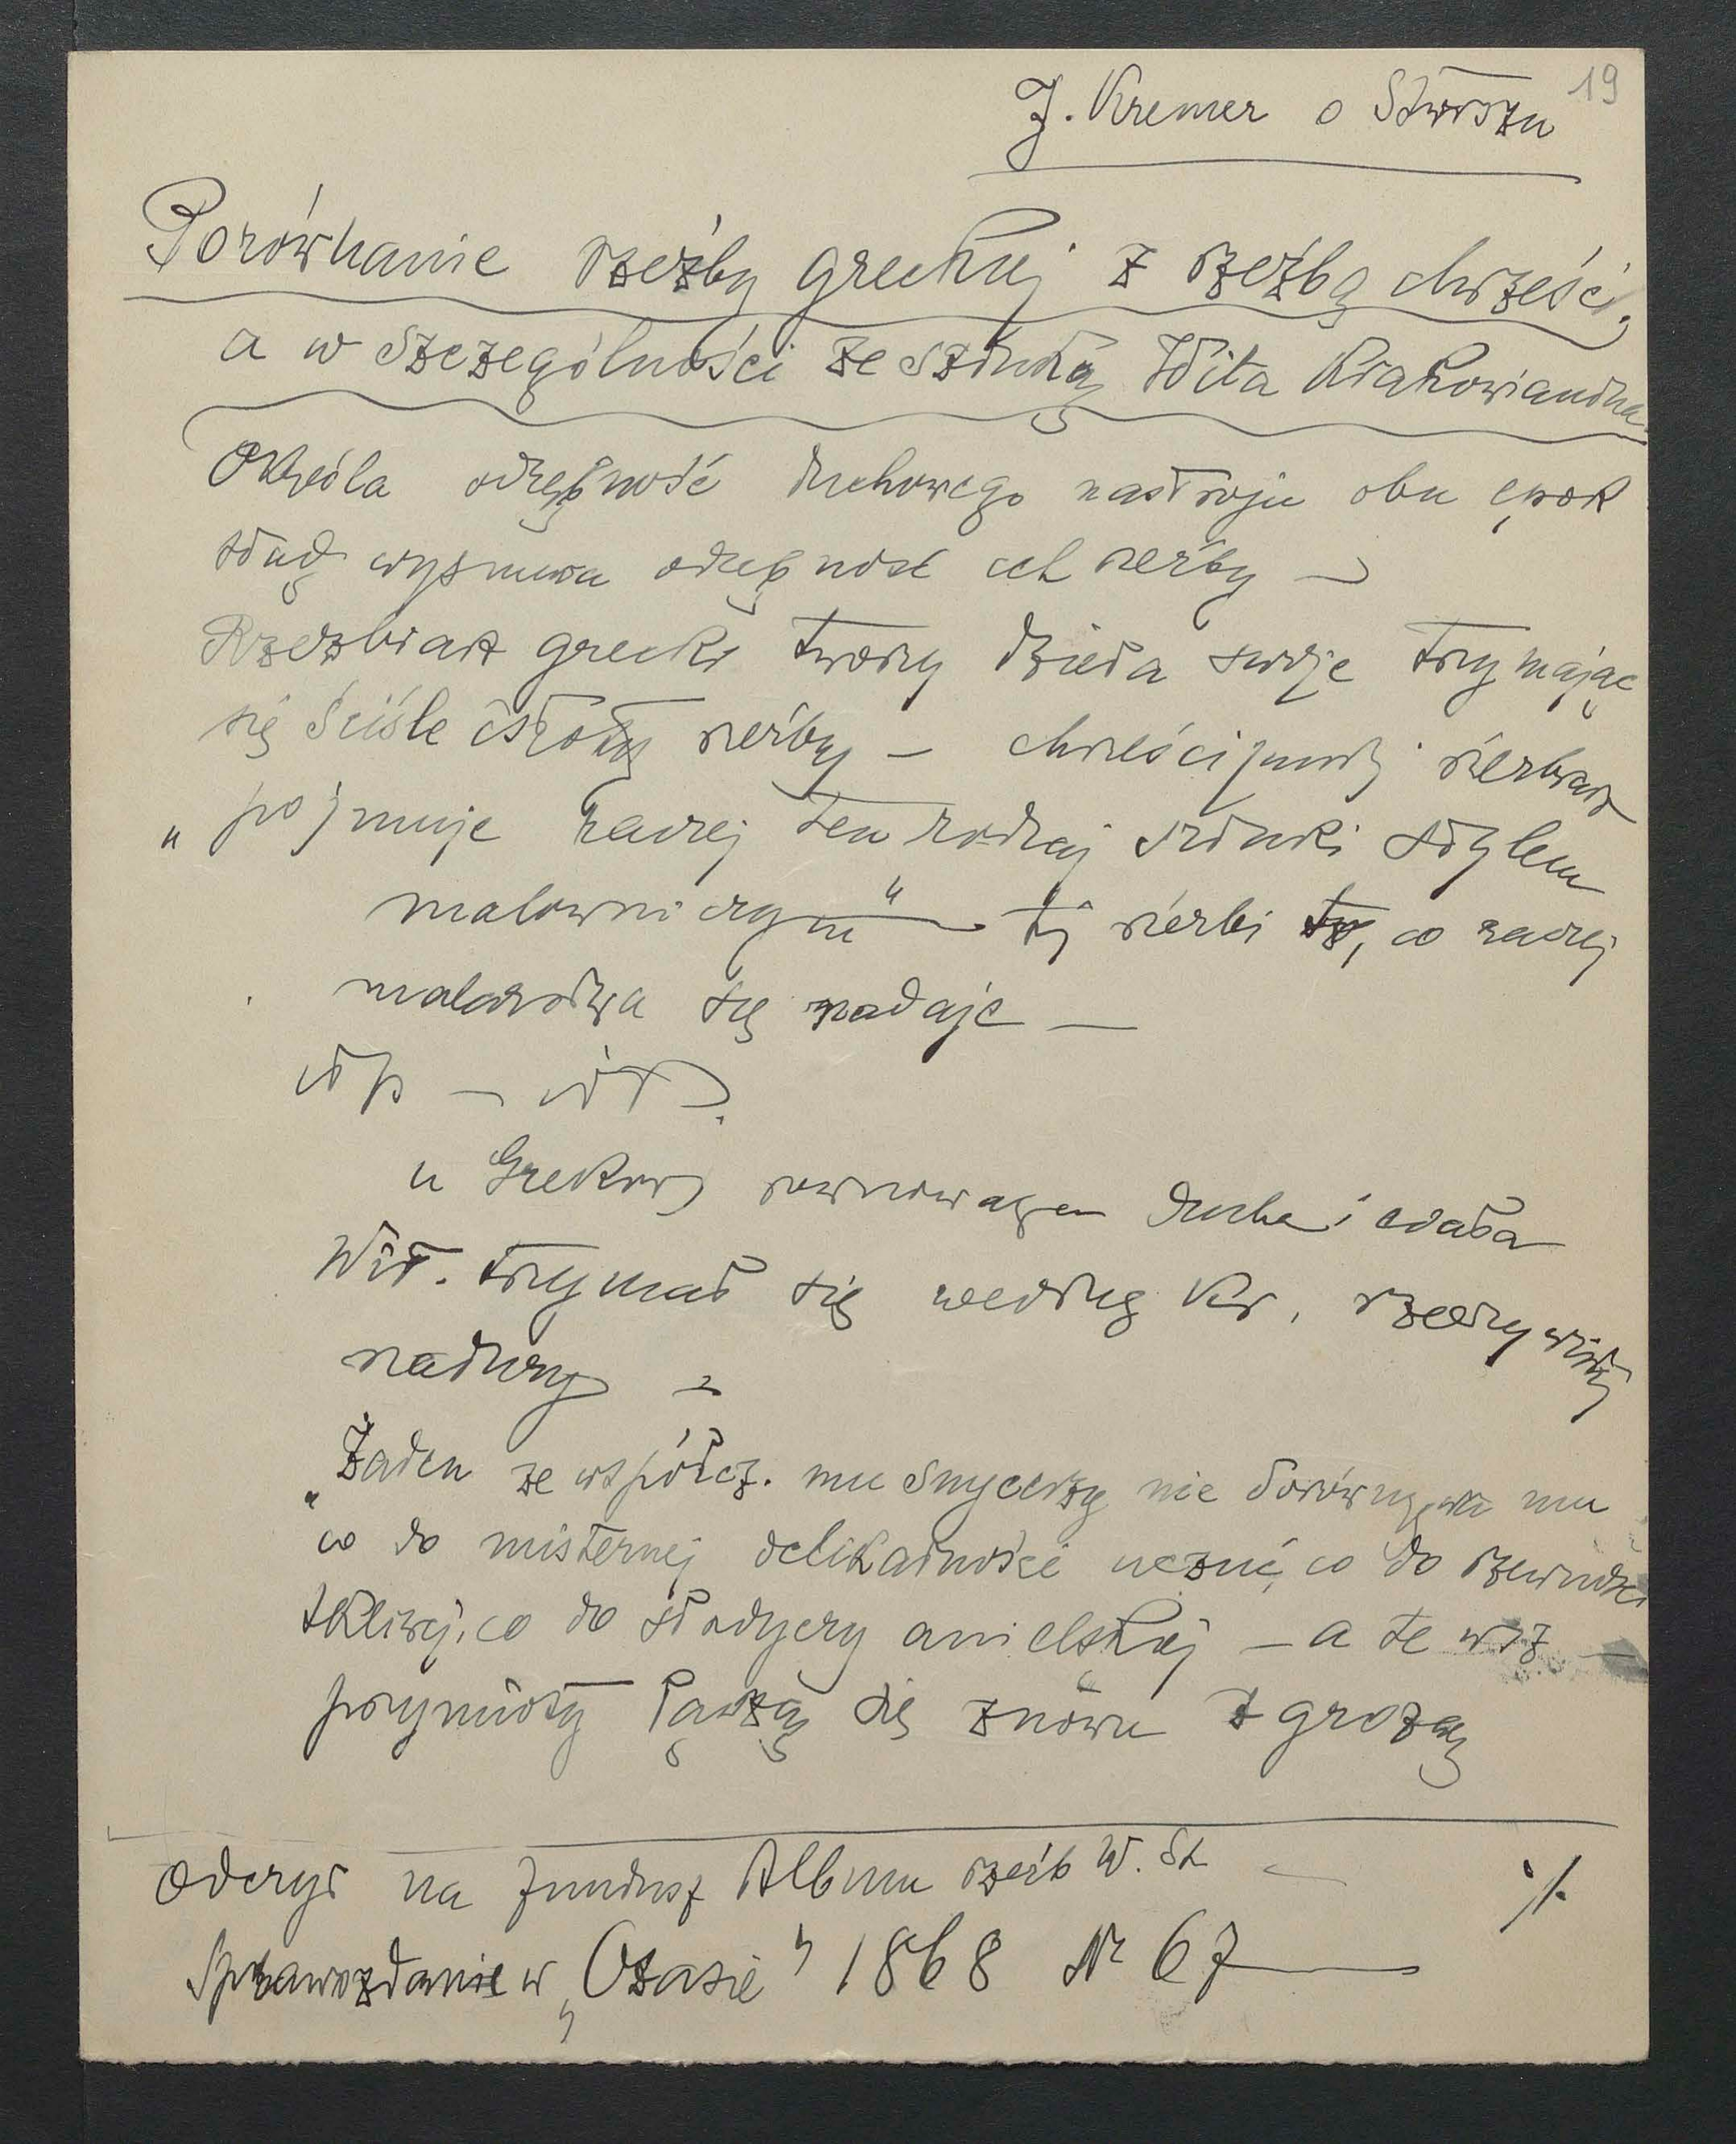 19
J. Kremer o Stwoszu
Porównanie rzeźby greckiej z rzeźbą chrześć.
a w szczególności ze sztuką Wita Krakowianina
Określa odrębność duchowego nastroju obu epok
stąd wypływa odrębność ich rzeźby —
Rzeźbiarz grecki tworzy dzieła swoje trzymając
się ściśle istoty rzeźby — chrześcijański rzeźbiarz
„pojmuje raczej ten rodzaj sztuki stylem
malowniczym" — tj rzeźbi to, co raczej
malarstwu się nadaje —
itp — itd.
u Greków równowaga ducha i ciała
Wit. trzymał się według Kr. rzeczywistej
natury —
„Żaden ze współcz. mu snycerzy nie dorównywa mu
co do misternej delikatności uczuć, co do rzewności
tkliwej, co do słodyczy anielskiej — a te wsz —
przymioty łączą się znowu z grozą
Odczyt na fundusz Albumu rzeźb W. St
Sprawozdanie w „Czasie" 1868 Nr 67 —
./.